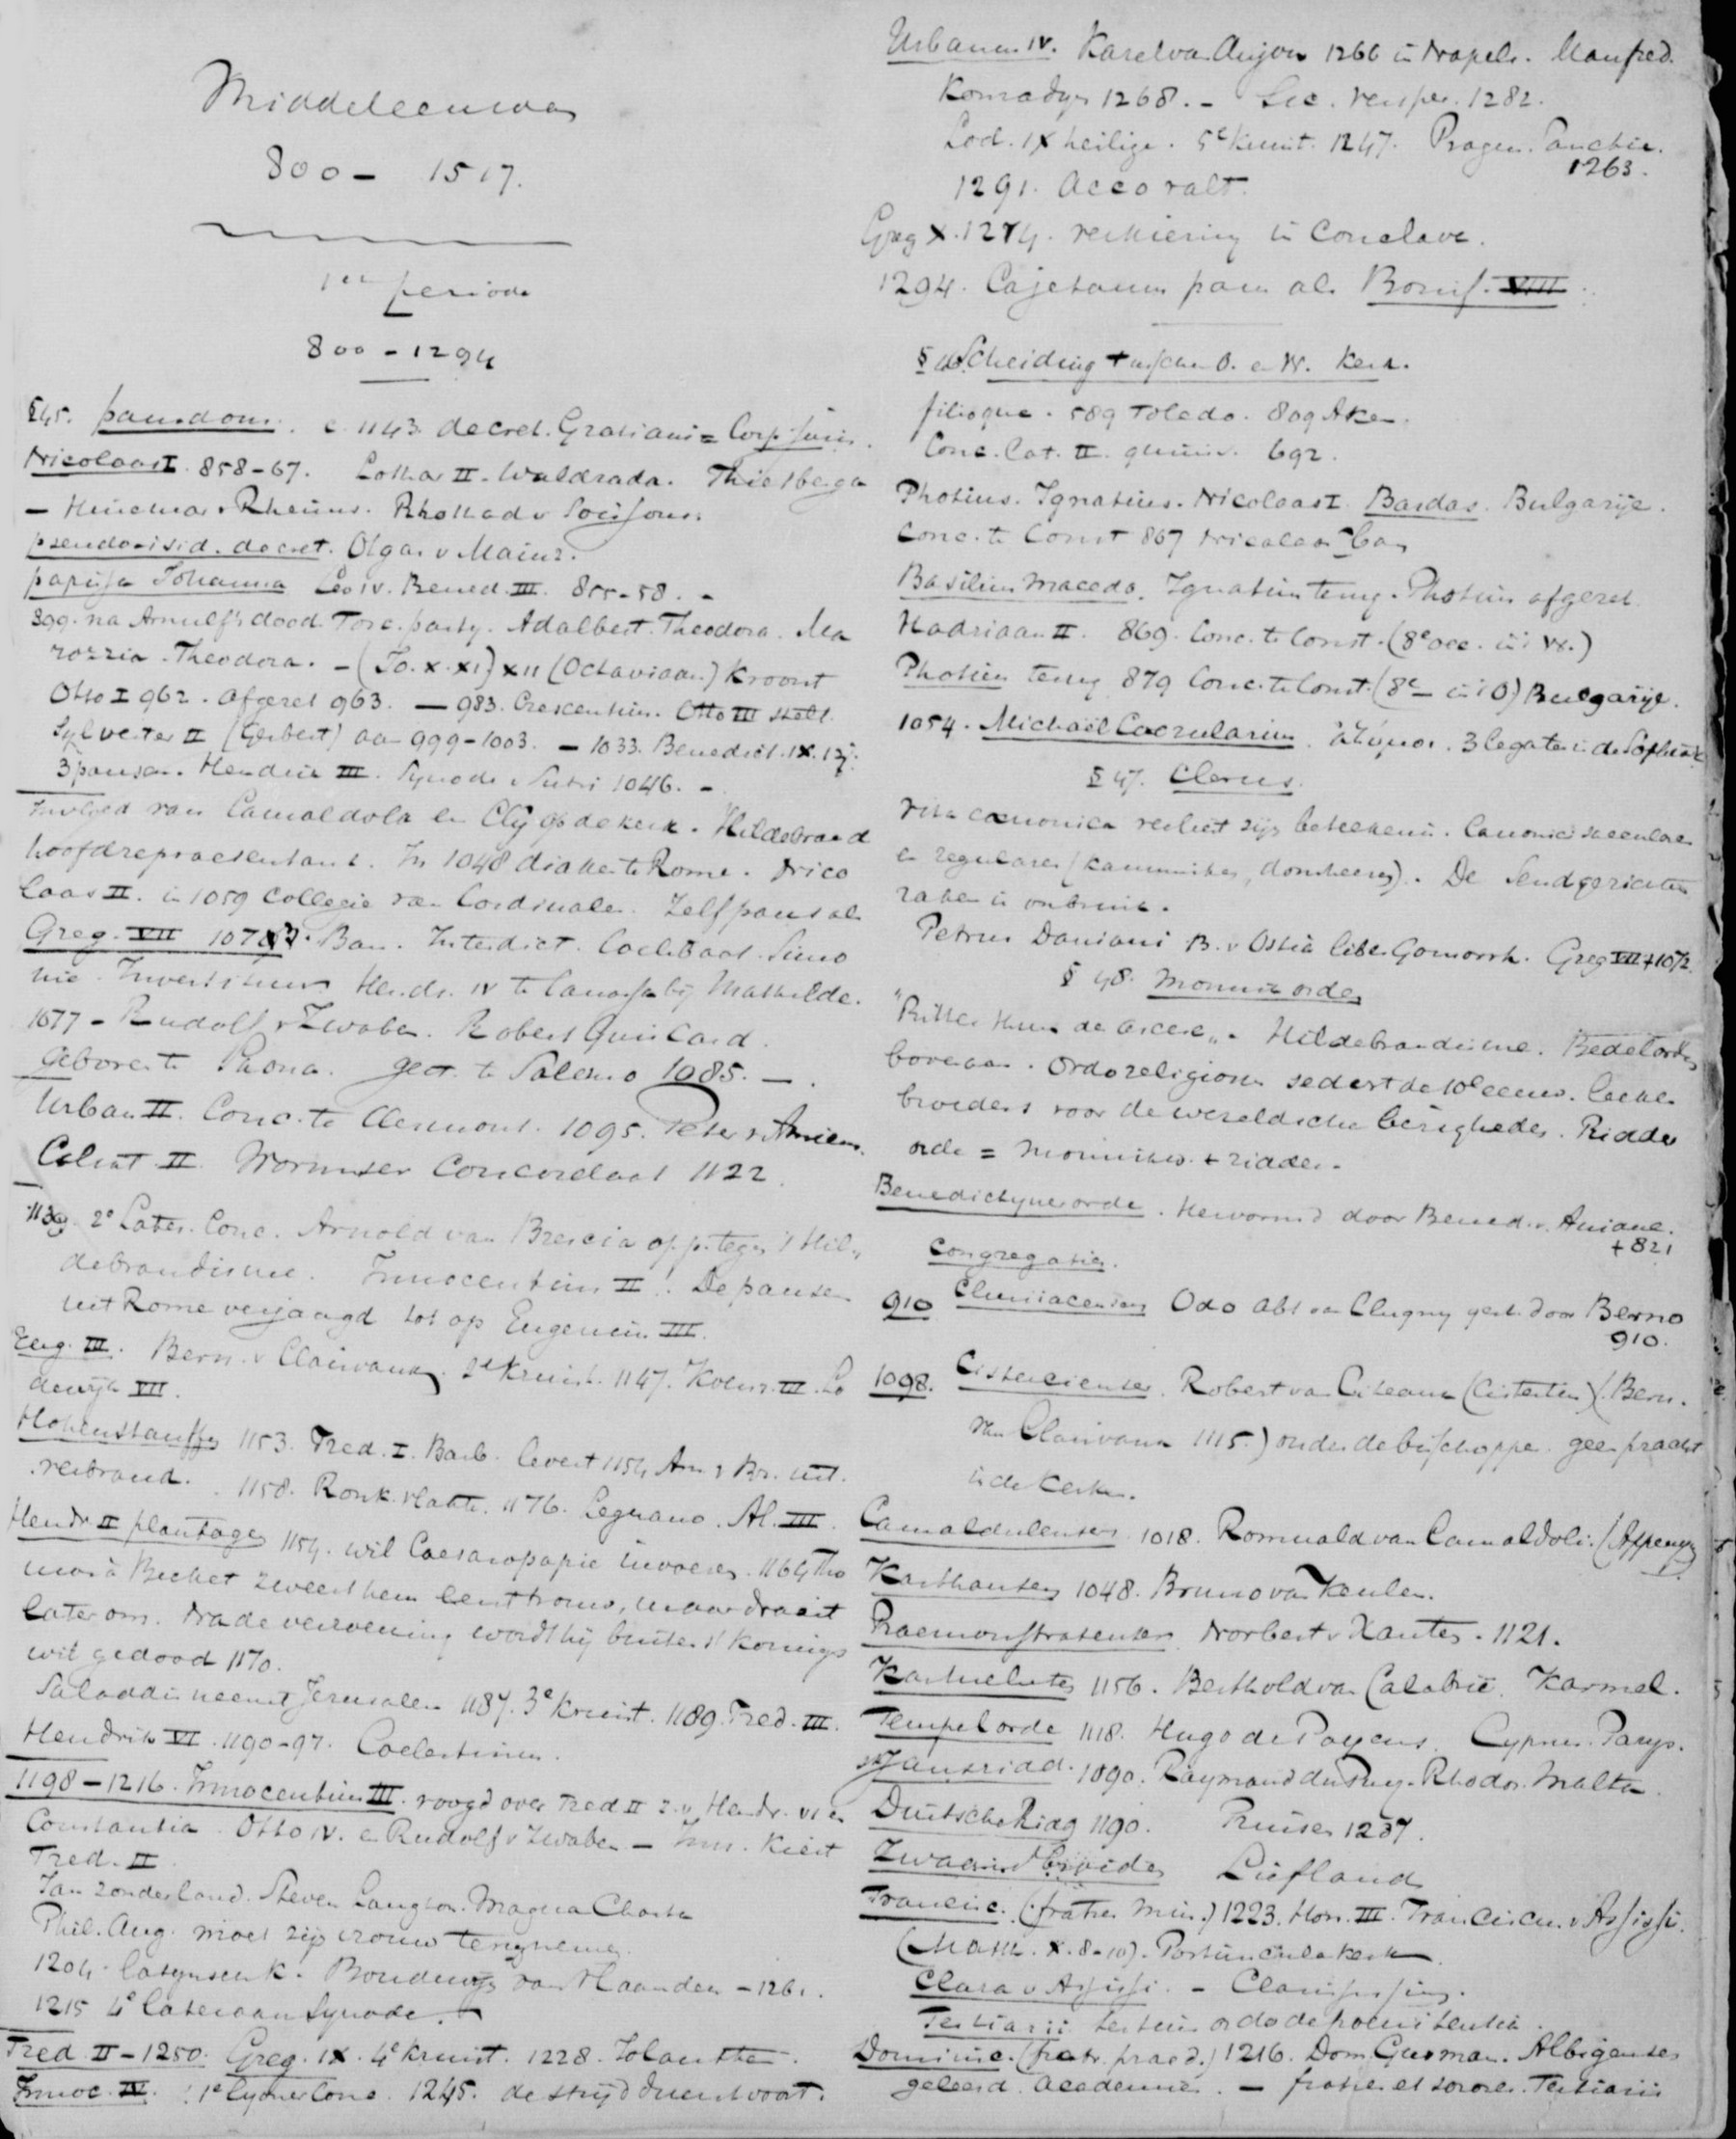 Middeleeuwen
800 - 1517.
1e periode
800 - 1294
§45. pausdom. c. 1143 decret. Gratiani = Corp. juris.
Nicolaas I. 858-67. Lothar II. Waldrada. Thietberga
- Hincmar v Rheims. Rhothad v Soissons.
pseudo-isid. decret. Otgar v Mainz.
papissa Johanna Leo IV. Bened. III. 855-58. -
899. na Arnulf's dood Tosc. party. Adalbert. Theodora. Ma
rozzia. Theodora. - (Jo. X. XI) XII (Octaviaan) kroont
Otto I 962. afgezet 963. - 983. Crescentius. Otto III stelt
Sylvester II (Gerbert) aan 999-1003. - 1033. Benedict. IX. 12j.
3 pausen. Hendrik III. Synode v Sutri 1046. -
Invloed van Camaldola en Cluny op de kerk. Hildebrand
hoofdrepraesentant. In 1048 diaken te Rome. Nico
laas II. in 1059 college van Cardinalen. Zelf paus als
Greg. VII 1073. Ban. Interdict. Coelibaat. Simo
nie. Investituur. Hendr. IV te Canossa bij Mathilde.
1077 - Rudolf v Zwaben. Robert Guiscard.
Geboren te Rhona. gest. te Salerno 1085. -.
Urban II. Conc. te Clermont. 1095. Peter v Amiens.
Calixt. II. Wormser Concordaat 1122.
1139. 2e Later. Conc. Arnold van Brescia opp. tegen 't Hil-
debrandisme. Innocentius II! De pausen
uit Rome verjaagd tot op Eugenius III.
Eug. III. Bern. v Clairvaux. 2e Kruist. 1147. Koenr. III. Lo
dewijk VII.
Hohenstauffen 1153. Fred. I. Barb. levert 1154 Arn. v Br. uit.
verbrand. 1158. Ronk. vlakte. 1176. Legnano. Al. III.
Hendr. II plantagen 1154. wil Caesaropapie invoeren. 1164 Tho
mas à Becket zweert hem leentrouw, maar draait
later om. Na de verzoening wordt hij buiten 's konings
wil gedood 1170.
Saladdin neemt Jerusalem 1187. 3e Kruist. 1189. Fred. III.
Hendrik VI. 1190-97. Coelestinus.
1198-1216. Innocentius III. voogd over Fred II z. v. Hendr. VI en
Constantia. Otto IV. en Rudolf v Zwaben - Inn. kiest
Fred. II
Jan zonder land. Steven Langton. Magna Charta
Phil. Aug. moet zijn vrouw terugnemen.
1204. Latynsch k. Boudewijn van Vlaanderen - 1261.
1215 4e Lateraansynode. -
Fred. II - 1250. Greg. IX. 4e kruist. 1228. Jolanthe.
Innoc. IV. 1e Lyoner Conc. 1245. de strijd duurt voort.
Urbanus IV. Karel van Anjou 1266 in Napels. Manfred.
Konradyn 1268. - Sic. vesper. 1282.
Lod. IX heilige. 5e kruist. 1247. Pragm. Sanctie.
1263.
1291. Acco valt.
Greg X. 1274. verkiezing in Conclave.
1294. Cajetanus paus als Bonif. VIII.
§ 46. Scheiding tusschen O. en W. kerk.
filioque. 589 Toledo. 809 Aken.
Conc. Cat. II. quinis. 692.
Photius. Ignatius. Nicolaas I. Bardas. Bulgarije.
Conc. te Const 867 Nicolaas ban
Basilius Macedo. Ignatius terug. Photius afgezet.
Hadriaan II. 869. Conc. te Const. (8e oec. in 't W.)
Photius terug 879 Conc. te Const. (8e - in 't O) Bulgarije.
1054. Michaël Caerularius. ἄζυμοι. 3 legaten in de Sophiak
§ 47. Clerus.
vita canonica verliest zijn beteekenis. Canonici saeculares
en regulares (kanunniken, domheeren). De Sendgerichten
raken in onbruik.
Petrus Damiani B. v Ostia liber Gomorrh. Greg VII +1072.
§ 48. Monnikorden
"Ritterthum de ascese". Hildebrandisme. Bedelorden
bovenaan. Ordo religiosus sedert de 10e eeuw. leeke
broeders voor de wereldsche bezigheden. Ridder
orde = monniken + ridder.
Benedictyner orde. Hervormd door Bened. v. Aniane.
+ 821
Congregaties.
910 Cluniacensers Odo abt van Clugny gest. door Berno
910.
1098. Cistercienser. Robert van Citeaux (Cistertium) (Bern.
van Clairvaux 1115.) onder de bisschoppen. geen pracht
in de kerken.
Camaldulensers 1018. Romuald van Camaldoli. (Appenyn)
Karthausers 1048. Bruno van Keulen.
Praemonstratensers Norbert v Xanten. 1121.
Karmelieten 1156. Berthold van Calabrië. Karmel.
Tempelorde 1118. Hugo de Payens. Cyprus. Parys.
St Jansridd. 1090. Raymond du Puy. Rhodos. Malta.
Duitsche Ridd. 1190. Pruisen 1237.
Zwaardbroeders Liefland
Francisc. (fratres min.) 1223. Hon. III. Franciscus v Assissi.
(Matth. X. 8-10). Portiuncula kerk
Clara v Assissi. - Clarissessen.
Tertiarii tertius ordo de poenitentia.
Dominic. (fratr. praed.) 1216. Dom. Gusman. Albigensen
geleerd. Academies. - fratres et sorores. Tertiarii